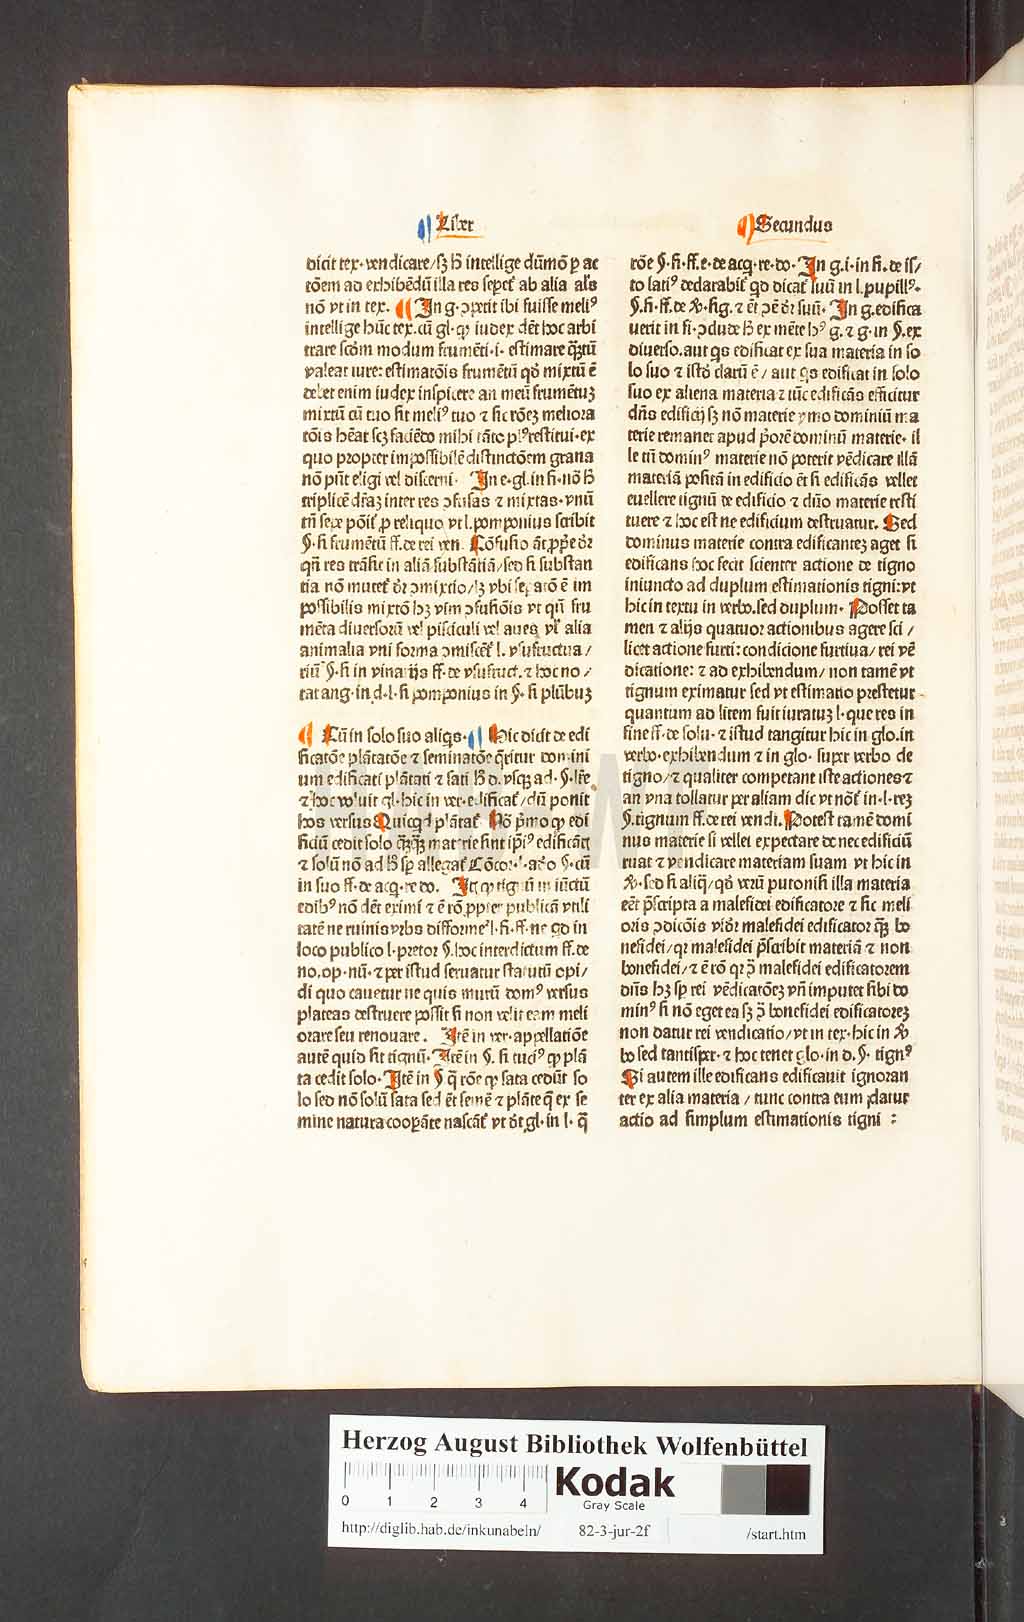 Liber
Secundus
dicit tex· vendicare/sꝫ h̄ intellige dūmō ꝑ ac
tōem ad exhibēdū illa res sepct̄ ab alia als
nō vt in tex. In g·ꝯperit ibi fuisse meliꝰ
intellige hūc tex.cū gl· qꝫ iudex dēt hoc arbi
trare scd̄m modum frumēti·i· estimare qͣꝫtū
valeat iure: estimatōis frumētū qd̄ mixtū ē
debet enim iudex inspicere an meū frumētuꝫ
mixtū cū tuo sit meliꝰ tuo ⁊ sic rōeꝫ meliora
tōis hēat sꝫ faciēdo mihi tāto plꝰrestitui·ex
quo propter impossibilē distinctōem grana
nō pn̄t eligi vel discerni· In e·gl.in fi·nō h̄
triplicē dr̄aꝫ inter res ꝯfusas ⁊ mixtas·vnū
tn̄ sepe pōit̄ ꝓ reliquo vt l.pomponius scribit
§·si frumētū ff.de rei ven. Cōfusio āt ꝓpͥe dr̄
qn̄ res trāsit in aliā substātiā/sed si substan
tia nō mutet̄ dr̄ ꝯmixtio/sꝫ vbi sepatō ē im
possibilis mixtō hꝫ vim ꝯfusiōis vt qn̄ fru
mēta diuersorū vel pisciculi vel aues vl̄ alia
animalia vni forma ꝯmiscēt̄ l. vsufructua/
riū §·si in vinarijs ff.de vsufruct.⁊ hoc no/
tat ang·in.d·l·si pomponius in §·si plūbuꝫ
Cū in solo suo aliqs· Hic dicit de edi
ficatōe plātatōe ⁊ seminatōe q̄ritur domini
um edificati plātati ⁊ sati h̄ d.vsqꝫ ad·§·lr̄e
⁊ hoc voluit gl·hic in ver·edificat̄/dū ponit
hos versus Quicqd plātat̄· Pō pͥmo qꝫ edi
ficiū cedit solo qͣꝫqͣꝫ materie sint ipͥiꝰ edificāti
⁊ solū nō ad h̄ sꝑ allegat̄ Cōcor·l·adeo §·cū
in suo ff.de acq·re do. Itē qꝫ tignū in iunctū
edibꝰ nō dēt eximi ⁊ ē rō ꝓpter publicā vtili
tatē ne ruinis vrbs difformet̄ l·fi·ff·ne qd in
loco publico l·pretor §·hoc interdictum ff.de
no.op·nū·⁊ per istud seruatur statutū opi/
di quo cauetur ne quis murū domꝰ versus
plateas destruere possit si non velit eam meli
orare seu renouare. Itē in ver·appellatiōe
autē quid sit tignū· Itē in §·si tuciꝰ qꝫ plā
ta cedit solo· Itē in § q̄ rōe qꝫ sata cedūt so
lo sed nō solū sata sed ēt semē ⁊ plāte q̄ ex se
mine natura cooꝑāte nascāt̄ vt dr̄.gl·in l·q̄
rōe §·si·ff.e·de acq·re·do· In g.i·in fi.de is/
to latiꝰ declarabit̄ qd dicat̄ suū in l.pupillꝰ·
§·si·ff.de ꝟ·sig.⁊ ēt ꝯē dr̄ suū· In g.edifica
uerit in fi·ꝯclude h̄ ex mēte hꝰ g.⁊ g·in §.ex
diuerso.aut qs edificat ex sua materia in so
lo suo ⁊ istd̄ clarū ē/ aut qs edificat in solo
suo ex aliena materia ⁊ tūc edificās efficitur
dn̄s edificij sꝫ nō materie ymo dominiū ma
terie remanet apud pͥorē dominū materie· il
le tn̄ dominꝰ materie nō poterit vēdicare illā
materiā positā in edificio ēt si edificās vellet
euellere tignū de edificio ⁊ dn̄o materie resti
tuere ⁊ hoc est ne edificium destruatur. Sed
dominus materie contra edificanteꝫ aget si
edificans hoc fecit scienter actione de tigno
iniuncto ad duplum estimationis tigni:vt
hic in textu in verbo.sed duplum· Posset ta
men ⁊ alijs quatuor actionibus agere sci/
licet actione furti: condicione furtiua/ rei vē
dicatione: ⁊ ad exhibendum/ non tamē vt
tignum eximatur sed vt estimatio prestetur
quantum ad litem fuit iuratuꝫ l·que res in
fine ff·de solu·⁊ istud tangitur hic in glo.in
verbo·exhibendum ⁊ in glo·super verbo de
tigno/⁊ qualiter competant iste actiones ⁊
an vna tollatur per aliam dic vt nōt̄ in·l·reꝫ
§·tignum ff.de rei vendi. Potest tamē domi
nus materie si vellet expectare donec edificiū
ruat ⁊ vendicare materiam suam vt hic in
ꝟ·sed si aliq̄/qd̄ verū puto nisi illa materia
eēt p̄scripta a malefidei edificatore ⁊ sic meli
oris ꝯdicōis vidr̄ malefidei edificator qͣꝫ bo
nefidei/qꝛ malefidei p̄scribit materiā ⁊ non
bonefidei/⁊ ē rō qꝛ ꝯ̄ malefidei edificatorem
dn̄s hꝫ sꝑ rei vēdicatōeꝫ vn̄ imputet sibi do
minꝰ si nō eget ea sꝫ ꝯ̄ bonefidei edificatoreꝫ
non datur rei vendicatio/vt in tex·hic in ꝟ
bo sed tantisper·⁊ hoc tenet glo·in d.§·tignꝰ
Si autem ille edificans edificauit ignoran
ter ex alia materia/ tunc contra eum datur
actio ad simplum estimationis tigni :
HAB WF
Herzog August Bibliothek Wolfenbüttel
0 1 2 3 4
Kodak
Gray Scale
http://diglib.hab.de/inkunabeln/ 82-3-jur-2f /start.htm